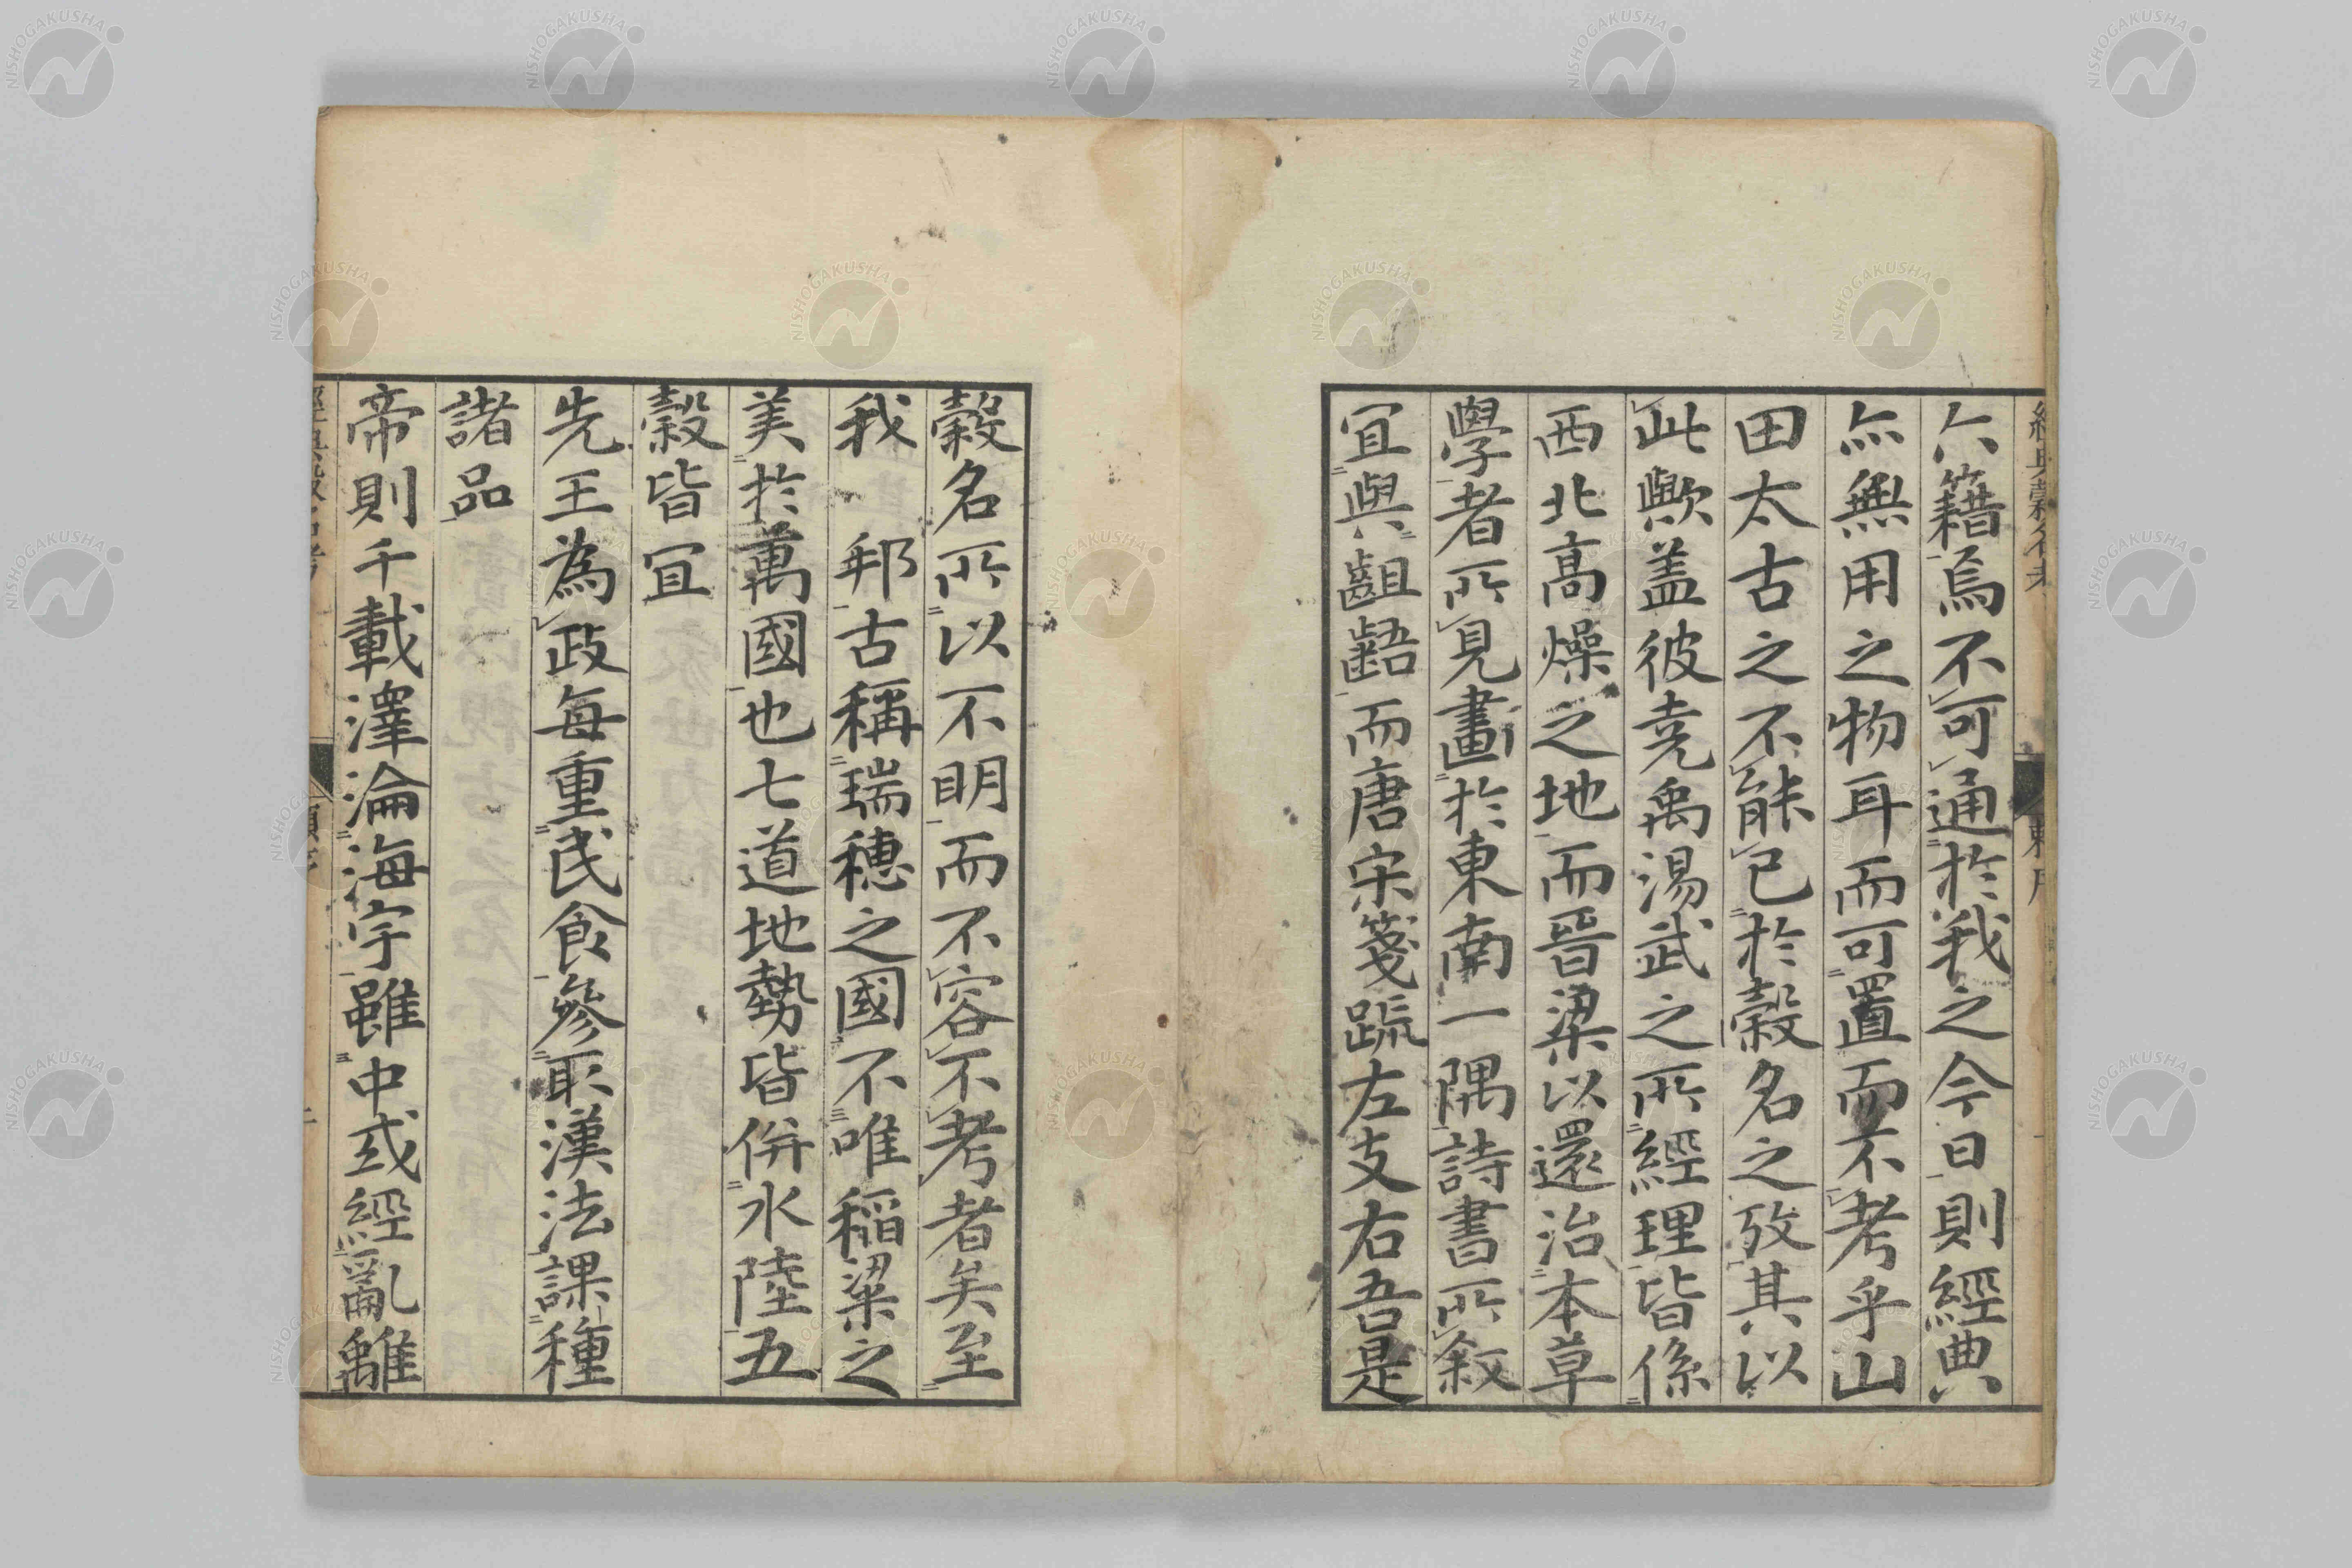 六籍焉不可通於我之今日則經典
亦無用之物耳而可置而不考乎山
田太古之不能已於穀名之攷其以
此歟蓋彼堯禹湯武之所經理皆係
西北高燥之地而晉梁以還治本草
學者所見畫於東南一隅詩書所敘
宜與齟齬而唐宋箋疏左支右吾是
穀名所以不明而不容不考者矣至
我邦古稱瑞穗之國不唯稻粱之
美於萬國也七道地勢皆併水陸五
穀皆宜
先王為政每重民食參取漢法課種
諸品
帝則千載澤淪海宇雖中或經亂離
NISHOGAKUSHA